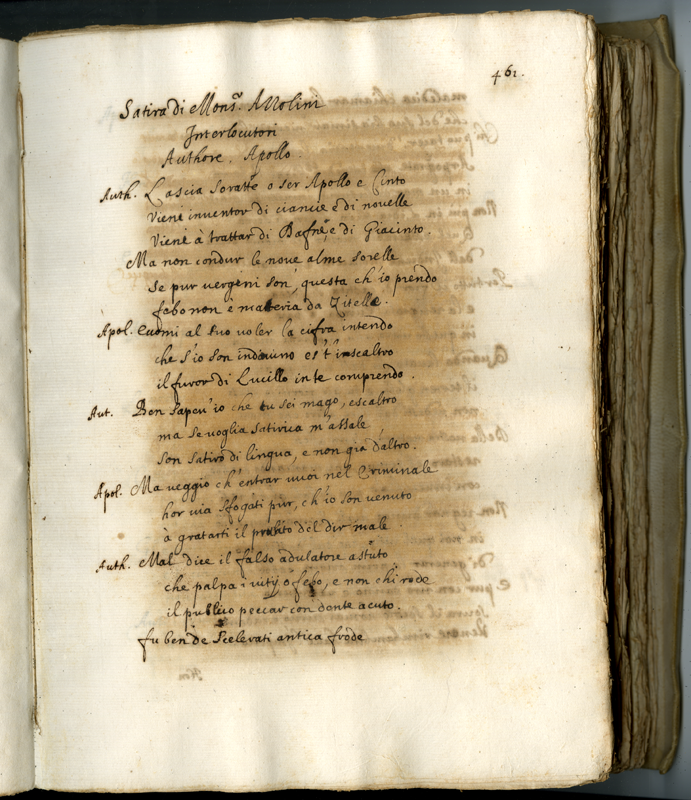 461.
Satira di Mons.r Azzolini
Interlocutori
Authore, Apollo.
Auth. Lascia Soratte o ser Apollo e Cinto
Viene inventor di ciancie e di novelle
Viene à trattar di Dafne, e di Giacinto.
Ma non condur le nove alme sorelle
Se pur vergeni son, questa ch'io prendo
febo non è materia da Zitelle.
Apol. al tuo voler la cifra intendo
che s'io son indovino es t'i inscaltro
il furor di Lucillo in te comprendo.
Aut. Ben sapev'io che tu sei mago, escaltro
ma se voglia satirica m'assale
son satiro di lingua, e non gia d'altro.
Apol. Ma veggio ch'entrar vuoi nel Criminale
hor via sfogati pur, ch'io son venuto
à gratarti il prurito del dir male.
Auth. Mal dice il falso adulatore astuto
che palpa i vitij ò febo, e non chi rode
il publico peccar con dente acuto.
fu ben de scelerati antica frode